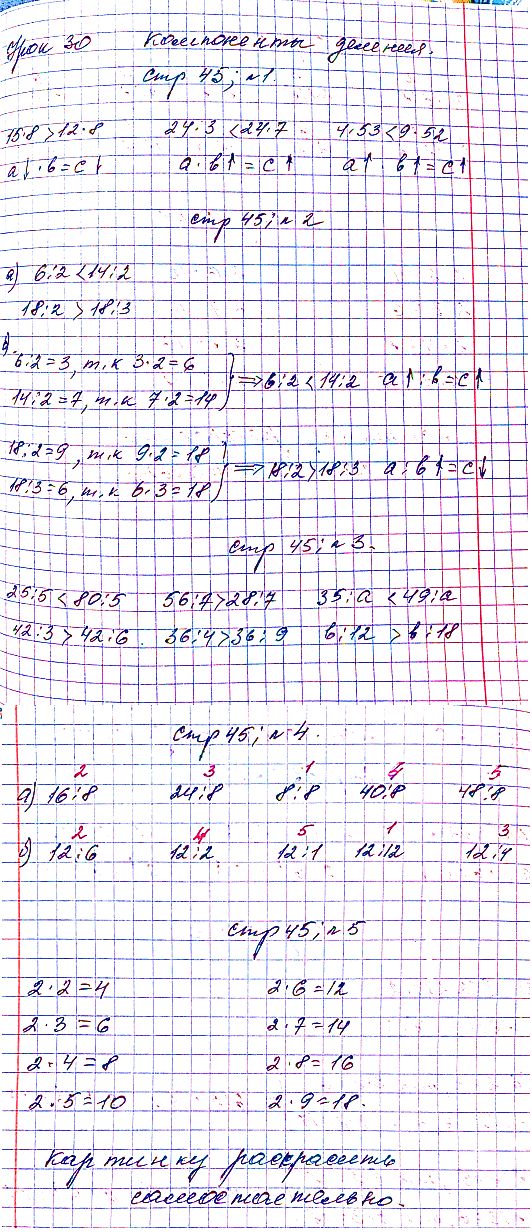 Урок 30 Компоненты деления.
стр 45; №1
15·8 > 12·8 24·3 < 24·7 4·53 < 9·52
a↓ · b = c↓ a · b↑ = c↑ a↑ · b↑ = c↑
стр 45; №2
а) 6:2 < 14:2
18:2 > 18:3
6:2=3, т.к 3·2=6
14:2=7, т.к 7·2=14 ⇒ 6:2 < 14:2 a↑ : b = c↑
18:2=9, т.к 9·2=18
18:3=6, т.к 6·3=18 ⇒ 18:2 > 18:3 a : b↑ = c↓
стр 45; №3.
25:5 < 80:5 56:7 > 28:7 35:a < 49:a
42:3 > 42:6 36:4 > 36:9 b:12 > b:18
стр 45; №4.
2 3 1 4 5
а) 16:8 24:8 8:8 40:8 48:8
2 4 5 1 3
б) 12:6 12:2 12:1 12:12 12:4
стр 45; №5
2·2=4 2·6=12
2·3=6 2·7=14
2·4=8 2·8=16
2·5=10 2·9=18.
Картинку раскрасить
самостоятельно.